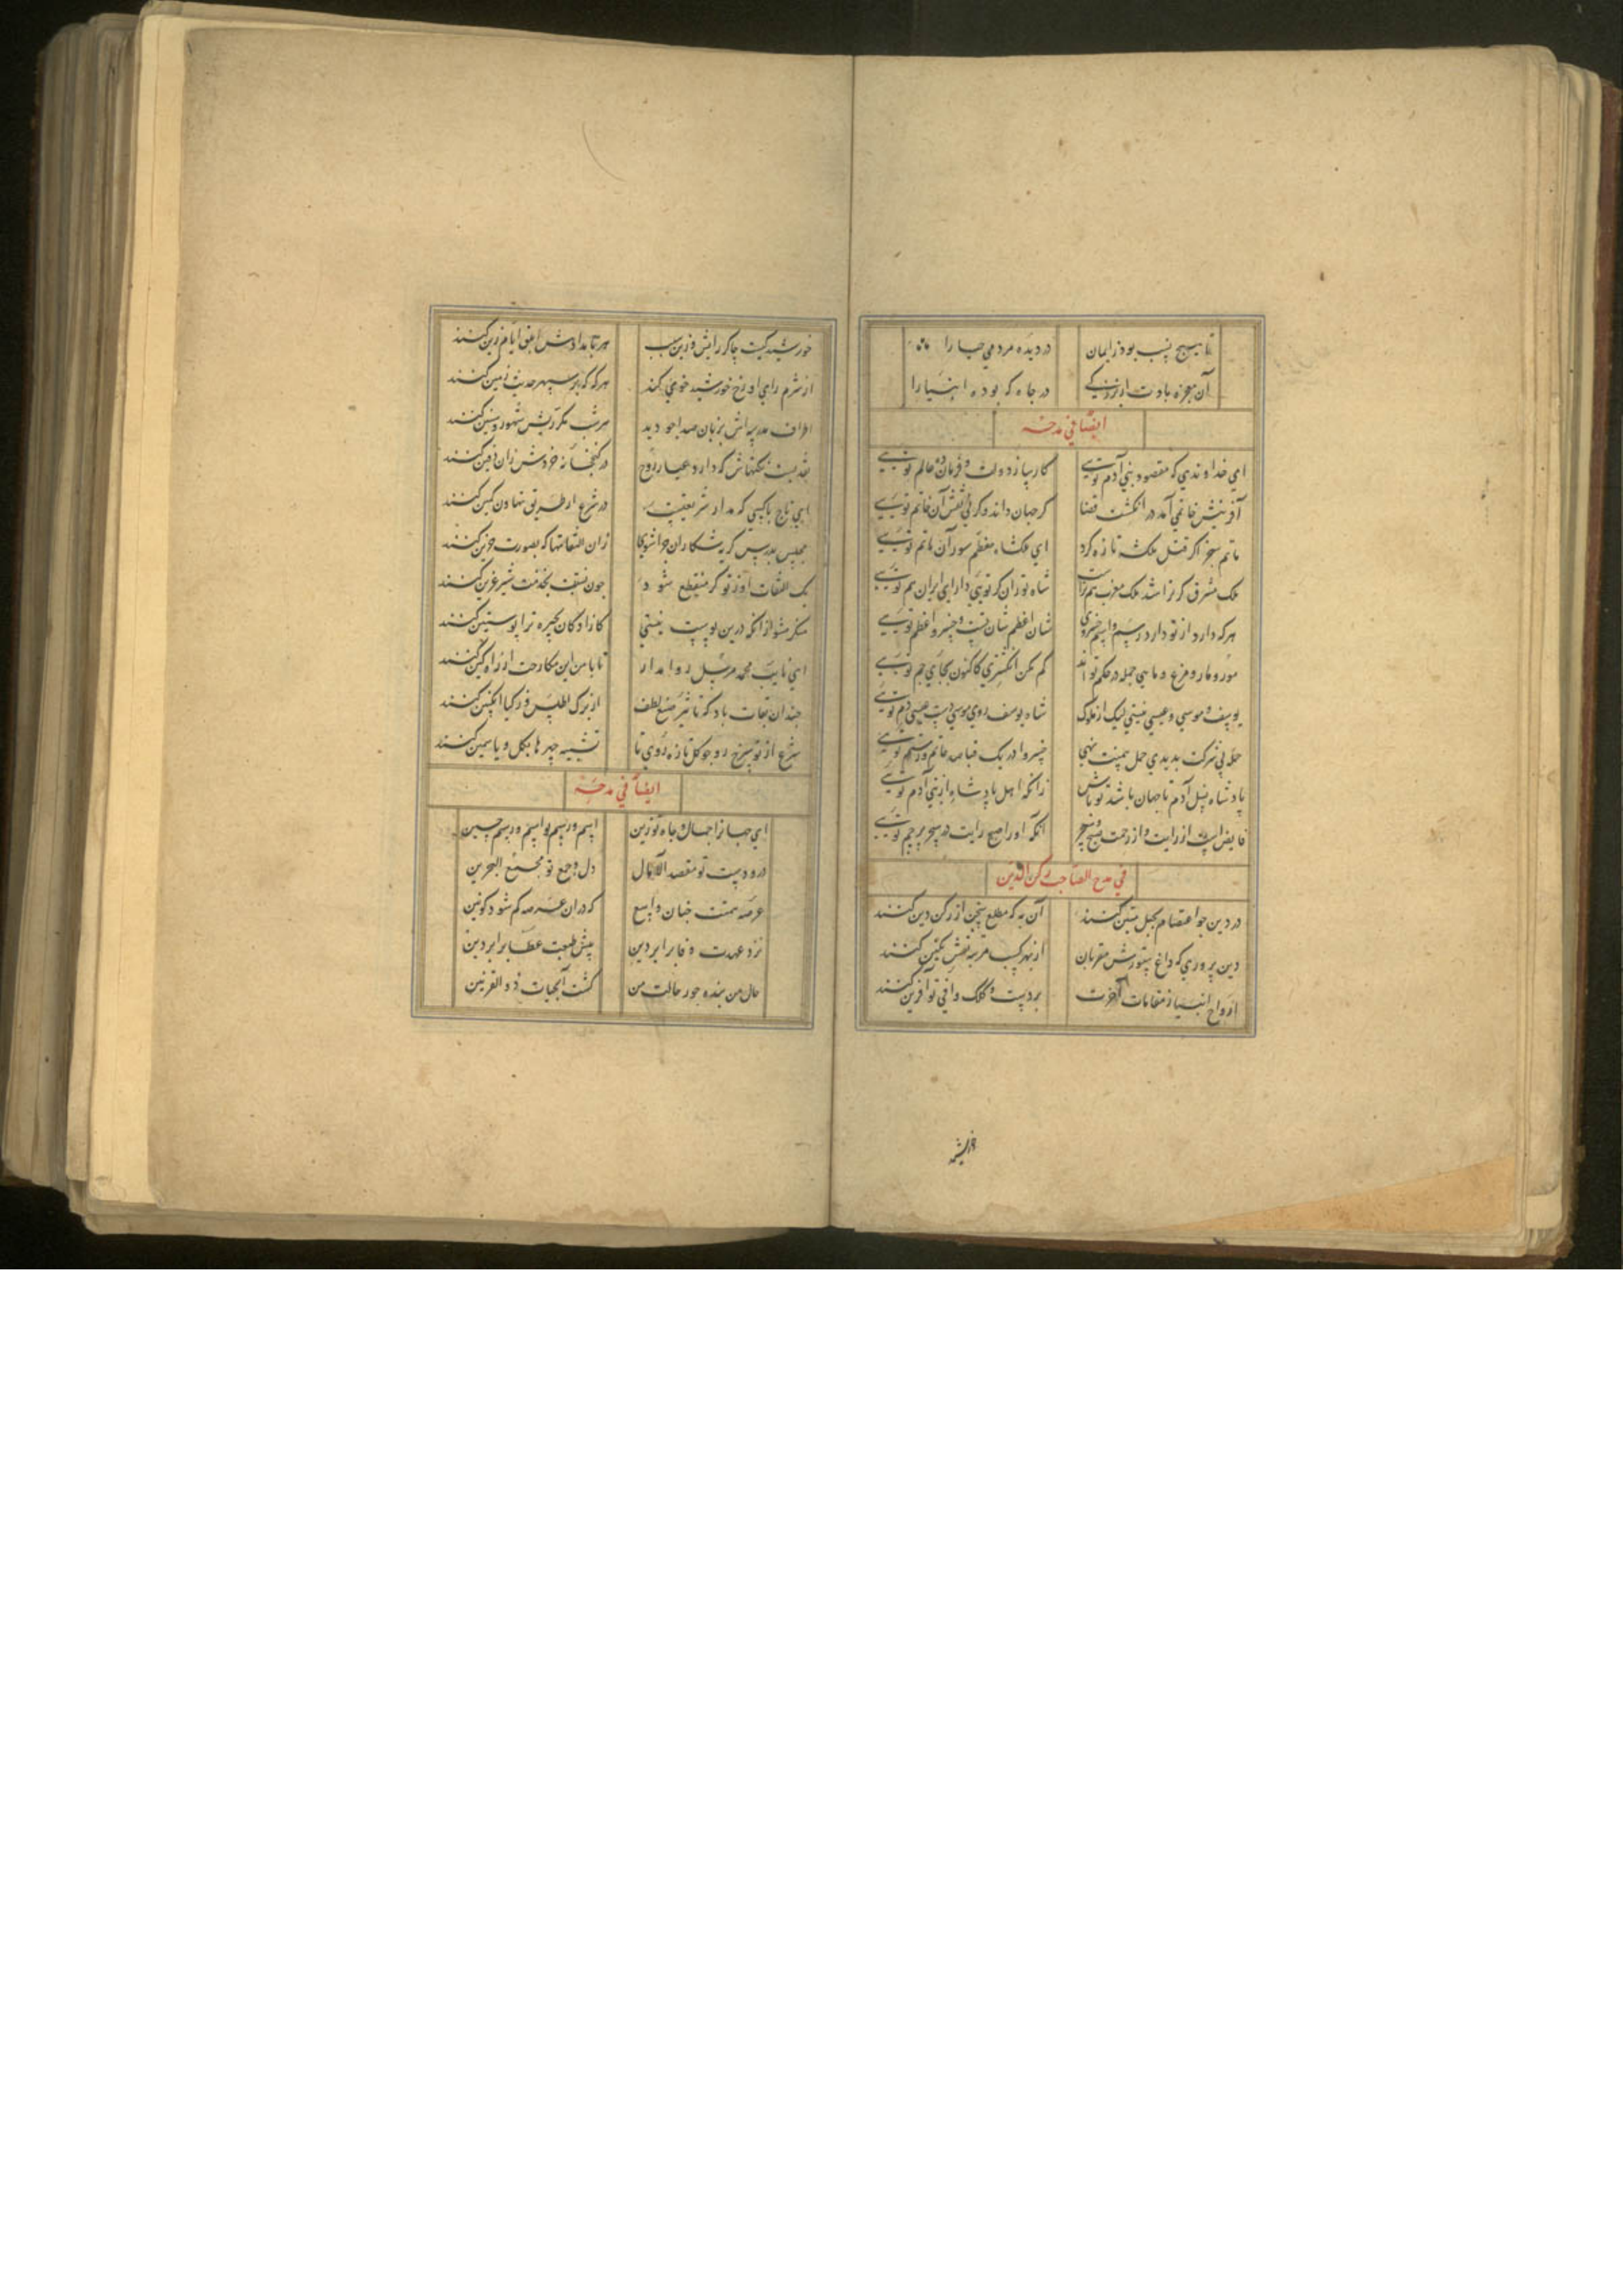 تا هیچ نسب بود ز ایمان در دیده مردمی حیا را
آن معجزه بادت از بزرگی در جاه که بوده انبیا را
ایضا فی مدحه
ای خداوندی که مقصود بنی آدم تویی کارساز دولت و فرمان ده عالم تویی
آفرینش خاتمی آمد در انگشت قضا گر جهان داند و گر نی نقش آن خاتم تویی
ماتم سنجر اگر قتل ملکشه تازه کرد ای ملکشاه معظم سور آن ماتم تویی
ملک مشرق گر ترا شد ملک مغرب هم تراست شاه توران گر تویی دارای ایران هم تویی
هرکه دارد از تو دارد رسم و اسم خسروی شان اعظم شان تست و خسرو اعظم تویی
مور و مار و مرغ و ماهی جمله در حکم تو اند گم مکن انگشتری کاکنون بجای جم تویی
یوسف و موسی و عیسی نیستی لیک از ملوک شاه یوسف روی موسی دست عیسی دم تویی
حمله بی شرکت بدیدی حمل همت خسروا در یک قبا صد حاتم و رستم تویی
پادشاه نسل آدم تا جهان باشد تو باش زانکه اهل پادشاهی از بنی آدم تویی
فایض است از رایت و از رحمت صبح و سحر آنکه او را صبح رایت در سحر پرچم تویی
فی مدح الصاحب رکن الدین
در دین چو اعتصام بحبل متین کنند آن به که مطلع سخن از رکن دین کنند
دین پروری که داغ ستورش مقربان از بهر کسب مرتبه نقش نگین کنند
ارواح انبیا ز مقامات آخرت بر دست و کلک وافی تو آفرین کنند
خورشید کیست چاکر رایش و زین سبب هر بامدادش ابلق ایام زین کنند
از شرم رای او رخ خورشید خوی کند هرگه که بر سپهر حدیث زمین کنند
اطراف مدرسه اش بزبان صدا چو دید هر شب مکررش شهور و سنین کنند
نقدیست نکتهاش که دارد عیار روح در گنج خانه خردش زان دفین کنند
ای تاج با کسی که مدار شریعتست در شرع از طریق تهاون کمین کنند
مجلس بدرس گریشکاران چرا شوی زان التفاتها که بصورت حزین کنند
یک التفات از تو گر منقطع شود چون نسبت بخدمت شیر عرین کنند
منکر مشو از انکه درین پوست نیستی کازادگان بخیره ترا پوستین کنند
ای نایب محمد مرسل روا مدار تا با من این مکارحت از راه کین کنند
چندان بقات باد که تاثیر صنع لطف از برگ اطلس و ز گیا انگبین کنند
شرع از تو سرخ رو چو گل تازه روی تا تشبیه چهرها بگل و یاسمین کنند
ایضا فی مدحه
ای جهانرا جمال جاه تو زین اسم و رسم تو اسم و رسم حسین
درو دست تو مقصد الآمال دل و جمع تو مجمع البحرین
عرصه همتت چنان واسع که در ان عرصه گم شود کونین
نزد عهدت وفا برابر دین پیش طبعت عطا برابر دین
حال من بنده جور حالت من گشت آب حیات ذو القرنین
خورشید